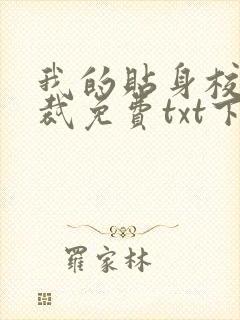 我的贴身校
裁免费txt下
羅家林